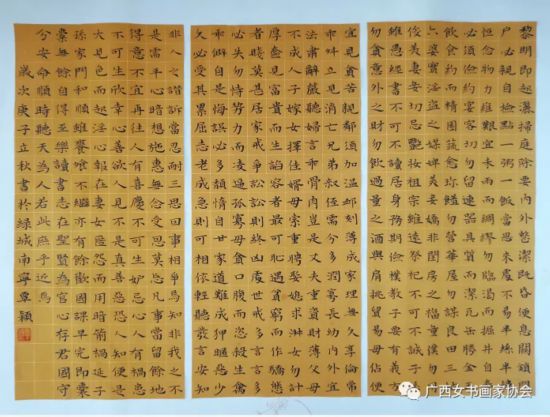 黎明即起灑掃庭除要内外整潔既昏便息關鎖門
户必親自檢點一粥一飯當思來處不易半絲半縷
恒念物力維艱宜未雨而綢繆勿臨渴而掘井自奉
必須儉約宴客切勿留連器具質而潔瓦缶勝金玉
飲食約而精園蔬愈珍饈勿營華屋勿謀良田三姑
六婆實淫盜之媒婢美妾嬌非閨房之福童僕勿用
俊美妻妾切忌艷妝祖宗雖遠祭祀不可不誠子孫
雖愚經書不可不讀居身務期儉樸教子要有義方
勿貪意外之財勿飲過量之酒與肩挑貿易毋佔便
宜見貧苦親鄰須加溫卹刻薄成家理無久享倫常
乖舛立見消亡兄弟叔侄需分多潤寡長幼内外宜
法肅辭嚴聽婦言乖骨肉豈是丈夫重資財薄父母
不成人子嫁女擇佳婿毋索重聘娶媳求淑女勿計
厚奩見富貴而生諂容者最可恥遇貧窮而作驕態者
賤莫甚居家戒爭訟訟則終凶處世戒多言言多
必失勿恃勢力而凌逼孤寡毋貪口腹而恣殺生禽
乖僻自是悔誤必多頹惰自甘家道難成狎暱惡少
久必受其累屈志老成急則可相依輕聽發言安知
非人之譖訴當忍耐三思因事相爭焉知非我之不
是需平心暗想施惠無念受恩莫忘凡事當留餘地
得意不宜再往人有喜慶不可生妒忌心人有禍患
不可生欣幸心善欲人見不是真善惡恐人知便是
大見色而起淫心報在妻女匿怨而用暗箭禍延子
孫家門和順雖饔飧不繼亦有餘歡國課早完即囊
橐無餘自得至樂讀書志在聖賢為官心存君國守
分安命順時聽天為人若此庶乎近焉
歲次庚子立秋書於綠城南寧覃穎
广西女书画家协会